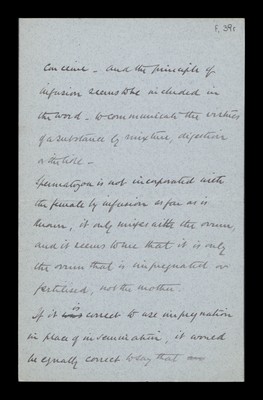 f. 39r
conceive – and the principle of
infusion seems to be included in
the word – to communicate the virtues
of a substance by mixture, digestion
or the like –
Spermatozoa is not incorporated with
the female by infusion as far as is
known, it only mixes with the ovum,
and it seems to me that it is only
the ovum that is impregnated or
fertilised, not the mother.
If it is correct to use impregnation
in place of insemination, it would
be equally correct to say that